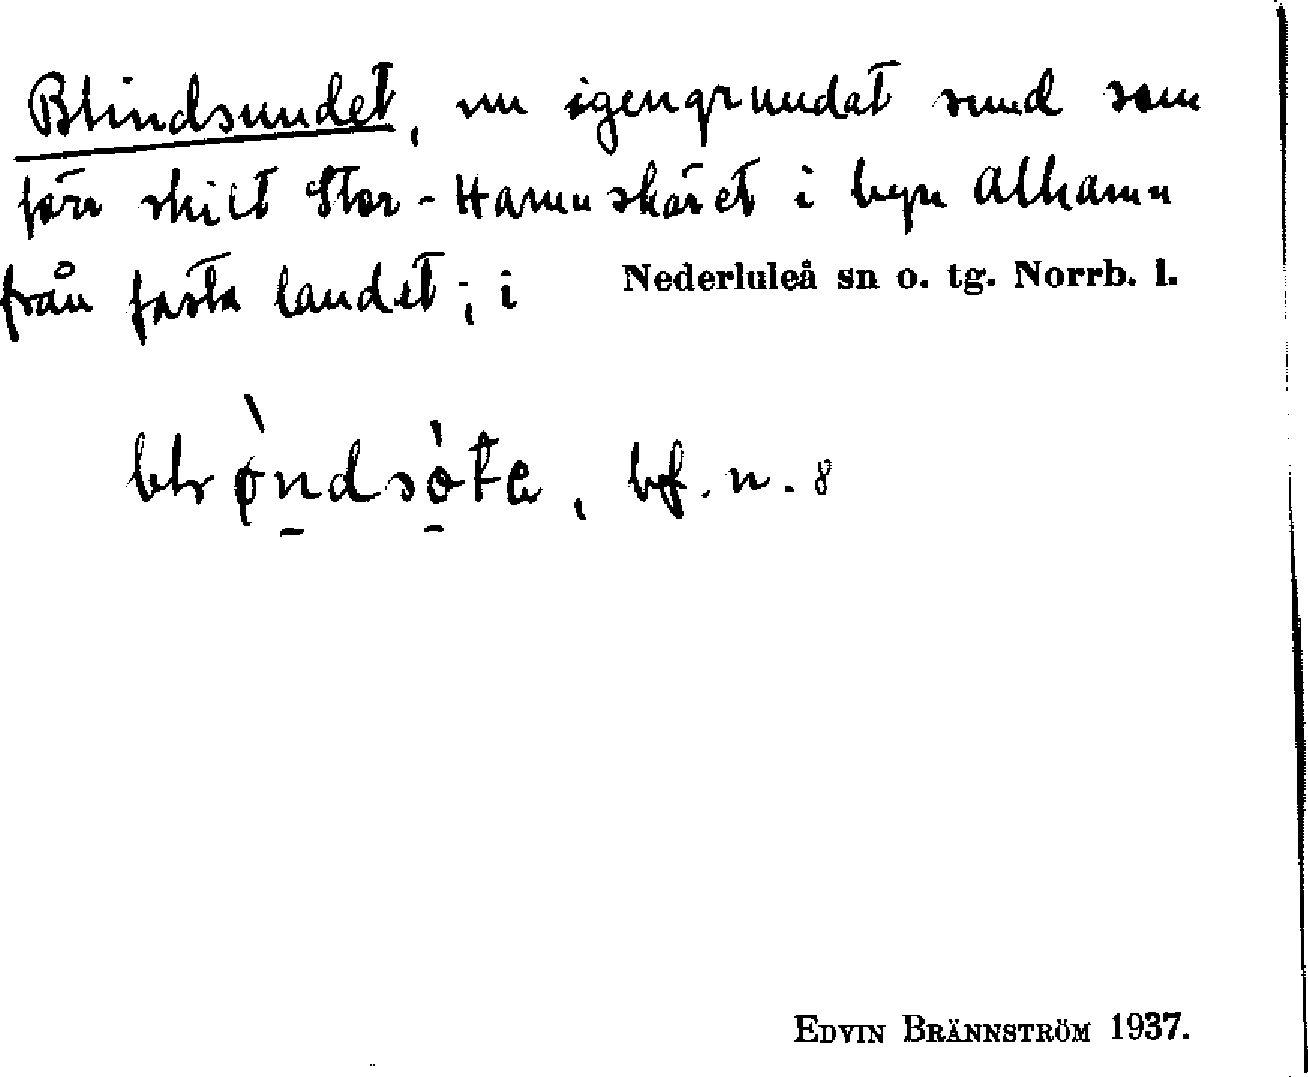 Blindsundet, nu igengrundat sund som
förr skilt Stor-Hamnskäret i byn Alhamn
från fasta landet; i Nederluleå sn o. tg. Norrb. l.
bef. n. 8
EDVIN BRÄNNSTRÖM 1937.